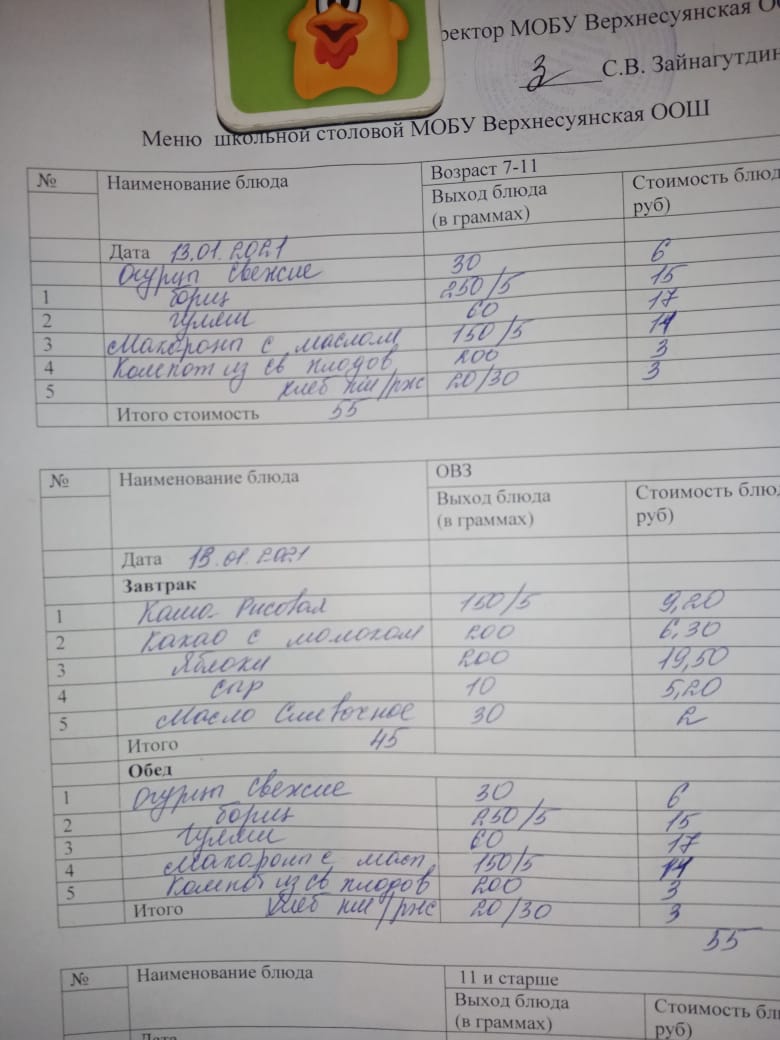 ректор МОБУ Верхнесуянская ОО
С.В. Зайнагутдин
Меню школьной столовой МОБУ Верхнесуянская ООШ
№ Наименование блюда Возраст 7-11
Выход блюда (в граммах) Стоимость блюд руб)
Дата 13.01.2021
Огурцы свежие 30 6
1 борщ 250/5 15
2 гуляш 60 17
3 Макароны с маслом 150/5 11
4 Компот из св плодов 200 3
5 хлеб пш/рж 20/30 3
Итого стоимость 55
№ Наименование блюда ОВЗ
Выход блюда (в граммах) Стоимость блюд руб)
Дата 13.01.2021
Завтрак
1 Каша Рисовая 150/5 9,20
2 Какао с молоком 200 6,30
3 Яблоки 200 19,50
4 сыр 10 5,20
5 Масло Сливочное 30 2
Итого 45
Обед
1 Огурцы свежие 30 6
2 борщ 250/5 15
3 гуляш 60 17
4 Макароны с масл 150/5 11
5 Компот из св плодов 200 3
Итого хлеб пш/рж 20/30 3
55
№ Наименование блюда 11 и старше
Выход блюда (в граммах) Стоимость бл руб)
Дата